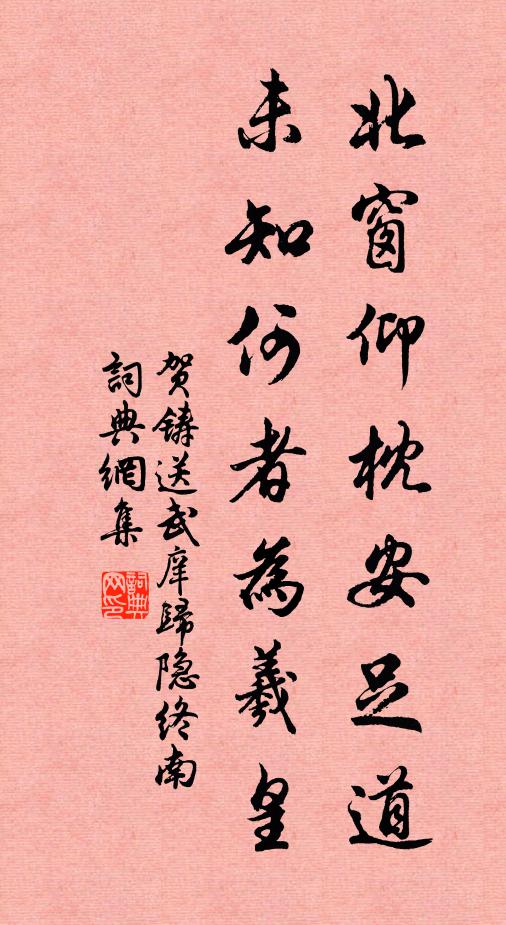 北窗仰枕安足道
未知何者為羲皇
贺鑄送武庠歸隐终南
詞典網集
詞典网印